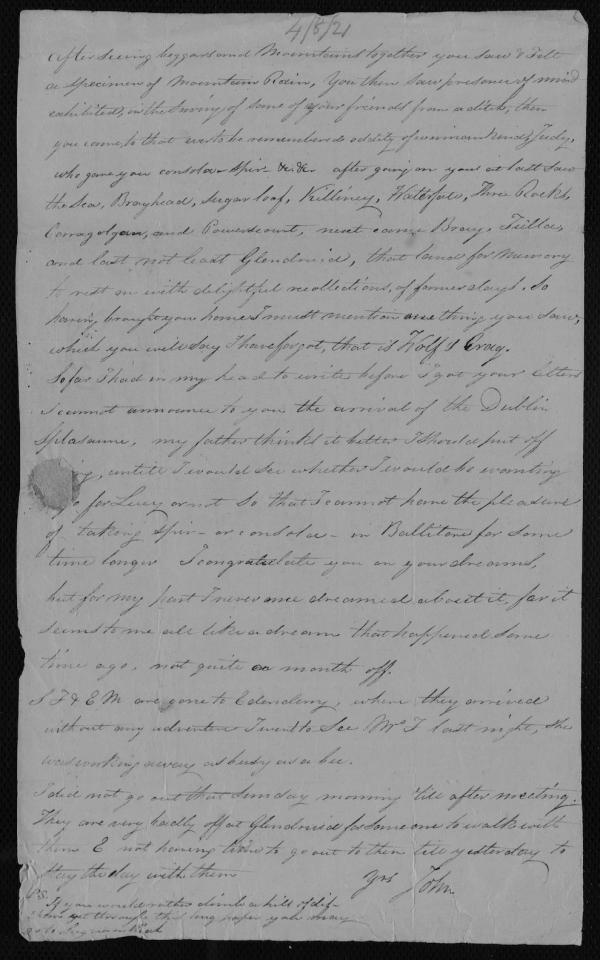 4/8/21
After seeing beggars and Mountains together you saw & felt
a specimen of Mountain Rain, You then saw presence of mind
exhibited, in the Survey of some of your friends from a ditch, then
you came to that ever to be remembered oddity of woman kind, Judy,
who gave you consola- spir- &c &c after going on you at last saw
the Sea, Brayhead, Sugar loaf, Killiney, Waterfall, Three Rocks,
and Powerscourt, next came Bray,
and last not least Glendruid, that land for Memory
to rest on with delightful recollections, of former days! So
having brought you home I must mention one thing you saw,
which you will say I have forgot, that is Wolf's Crag.
So far I had in my head to write before I got your letters
I cannot announce to you the arrival of the Dublin
my father thinks it better I should put off
untill I would see whether I would be wanting
for Lucy or not So that I cannot have the pleasure
of taking spir- or consola- in Ballitore for some
time longer I congratulate you on your dreams,
but for my part I never once dreamed about it, for it
seems to me all like a dream that happened some
time ago, not quite a month off.
S F & E M are gone to Edenderry, where they arrived
without any adventure I went to See Mrs F last night, she
was working away as busy as a bee.
I did not go out that Sunday morning 'till after meeting.
They are very badly off at Glendruid for some one to walk with
them E not having time to go out to them till yesterday to
Stay the day with them yrs John
PS. If you would rather climb a hill of
than get through this long paper you may